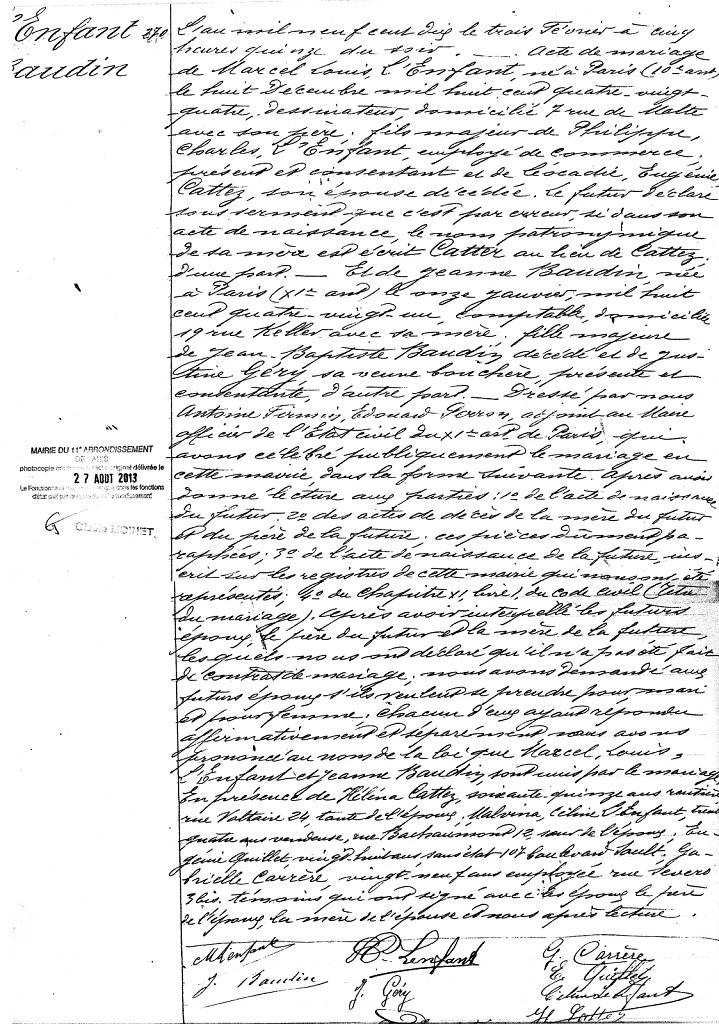 L'Enfant 270
Baudin
L'an mil neuf cent dix le trois Février à cinq
heures quinze du soir. — Acte de mariage
de Marcel Louis L'Enfant, né à Paris (10e art)
le huit Décembre mil huit cent quatre-vingt-
quatre, dessinateur, domicilié 7 rue de Malte
avec son père; fils majeur de Philippe,
Charles, L'Enfant, employé de commerce,
présent et consentant et de Léocadie, Eugénie
Cattez, son épouse décédée. Le futur déclare
sous serment que c'est par erreur, si dans son
acte de naissance, le nom patronymique
de sa mère est écrit Catter au lieu de Cattez.
d'une part. — Et de Jeanne Baudin née
à Paris (XIe arrt) le onze janvier, mil huit
cent quatre-vingt un, comptable, domiciliée
19 rue Keller avec sa mère; fille majeure
de Jean-Baptiste Baudin, décédé et de Jus-
tine Géry, sa veuve bouchère, présente et
consentante, d'autre part. — Dressé par nous
Antoine Firmin, Edouard adjoint au Maire
officier de l'Etat civil du XIe art de Paris, qui
avons célébré publiquement le mariage en
cette mairie, dans la forme suivante. Après avoir
donné lecture aux parties: 1o de l'acte de naissance
du futur, 2o des actes de décès de la mère du futur
et du père de la future; ces pièces dûment pa-
raphées; 3o de l'acte de naissance de la future, ins-
crit sur les registres de cette mairie qui nous ont été
représentés; 4o du chapitre VI, livre 1, du code civil (Titre
du mariage). Après avoir interpellé les futurs
époux, le père du futur et la mère de la future,
lesquels nous ont déclaré qu'il n'a pas été fait
de contrat de mariage, nous avons demandé aux
futurs époux s'ils veulent se prendre pour mari
et pour femme; chacun d'eux ayant répondu
affirmativement et séparément nous avons
prononcé au nom de la loi que Marcel, Louis,
L'Enfant et Jeanne Baudin sont unis par le mariage.
En présence de Héléna Cattez, soixante quinze ans rentière
rue Voltaire 24, tante de l'époux, Malvina, Céline L'Enfant, trente
quatre ans vendeuse, rue Bachaumont 12, sœur de l'époux, Eu-
génie Quillet vingt huit ans sans état 107 boulevard Soult. Ga-
brielle Carrère vingt neuf ans employée rue Severo
3 bis, témoins qui ont signé avec les époux le père
de l'époux, la mère de l'épouse et nous après lecture.
MAIRIE DU 11e ARRONDISSEMENT
DE PARIS
original délivrée le
27 AOUT 2013
MOINET
MLenfant
J. Baudin
Ph. Lenfant
J. Géry
G. Carrère
E. Quillet
Céline L'Enfant
H Cattez